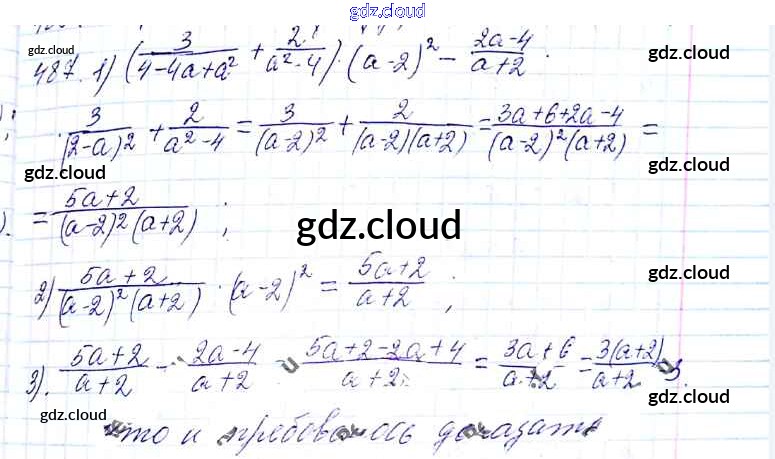 gdz.cloud
487. 1) (3/(4-4a+a²) + 2/(a²-4)) · (a-2)² - (2a-4)/(a+2).
gdz.cloud
gdz.cloud
gdz.cloud
3/(2-a)² + 2/(a²-4) = 3/(a-2)² + 2/((a-2)(a+2)) = (3a+6+2a-4)/((a-2)²(a+2)) =
gdz.cloud
gdz.cloud
= (5a+2)/((a-2)²(a+2));
gdz.cloud
2) (5a+2)/((a-2)²(a+2)) · (a-2)² = (5a+2)/(a+2);
gdz.cloud
3). (5a+2)/(a+2) - (2a-4)/(a+2) = (5a+2-2a+4)/(a+2) = (3a+6)/(a+2) = 3(a+2)/(a+2) = 3.
gdz.cloud
gdz.cloud
что и требовалось доказать